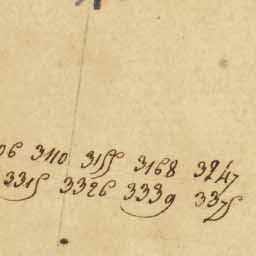 06 3110 3155 3168 3247
3315 3326 3339 3375